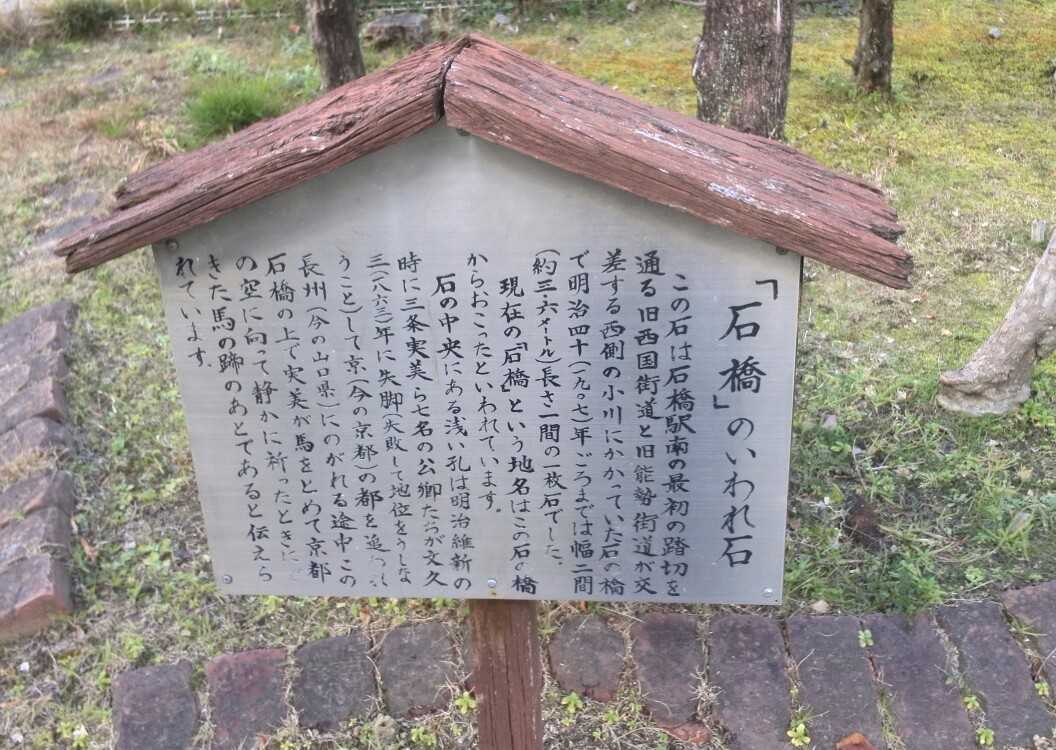 「石橋」のいわれ石
この石は石橋駅南の最初の踏切を
通る旧西国街道と旧能勢街道が交
差する西側の小川にかかっていた石の橋
で明治四十(一九〇七)年ごろまでは幅二間
(約三・六メートル)長さ一間の一枚石でした。
現在の「石橋」という地名はこの石の橋
からおこったといわれています。
石の中央にある浅い孔は明治維新の
時に三条実美ら七名の公卿たちが文久
三(一八六三)年に失脚(失敗して地位をうしな
うこと)して京(今の京都)の都を追われ
長州(今の山口県)にのがれる途中この
石橋の上で実美が馬をとめて京都
の空に向って静かに祈ったときにで
きた馬の蹄のあとであると伝えら
れています。